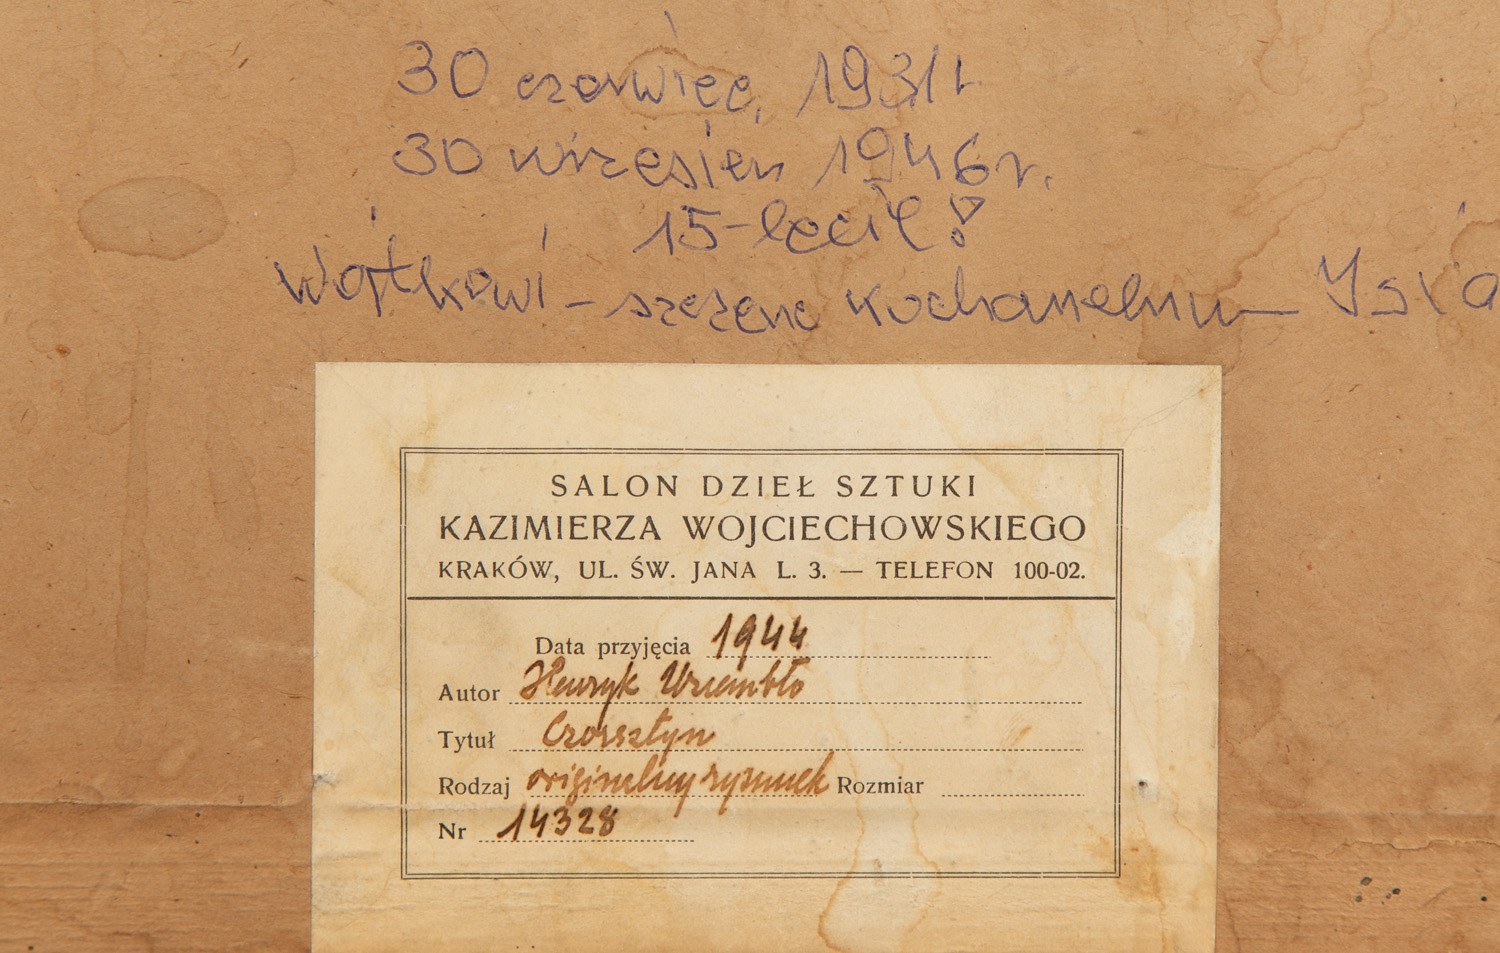 30 czerwiec, 1931 r
30 wrzesień 1946 r.
15-lecie!
Wojtkowi – szczerze kochanemu – Isia
SALON DZIEŁ SZTUKI
KAZIMIERZA WOJCIECHOWSKIEGO
KRAKÓW, UL. ŚW. JANA L. 3. — TELEFON 100-02.
Data przyjęcia 1944
Autor Henryk Uziembło
Tytuł Czorsztyn
Rodzaj originelny rysunek Rozmiar
Nr 14328